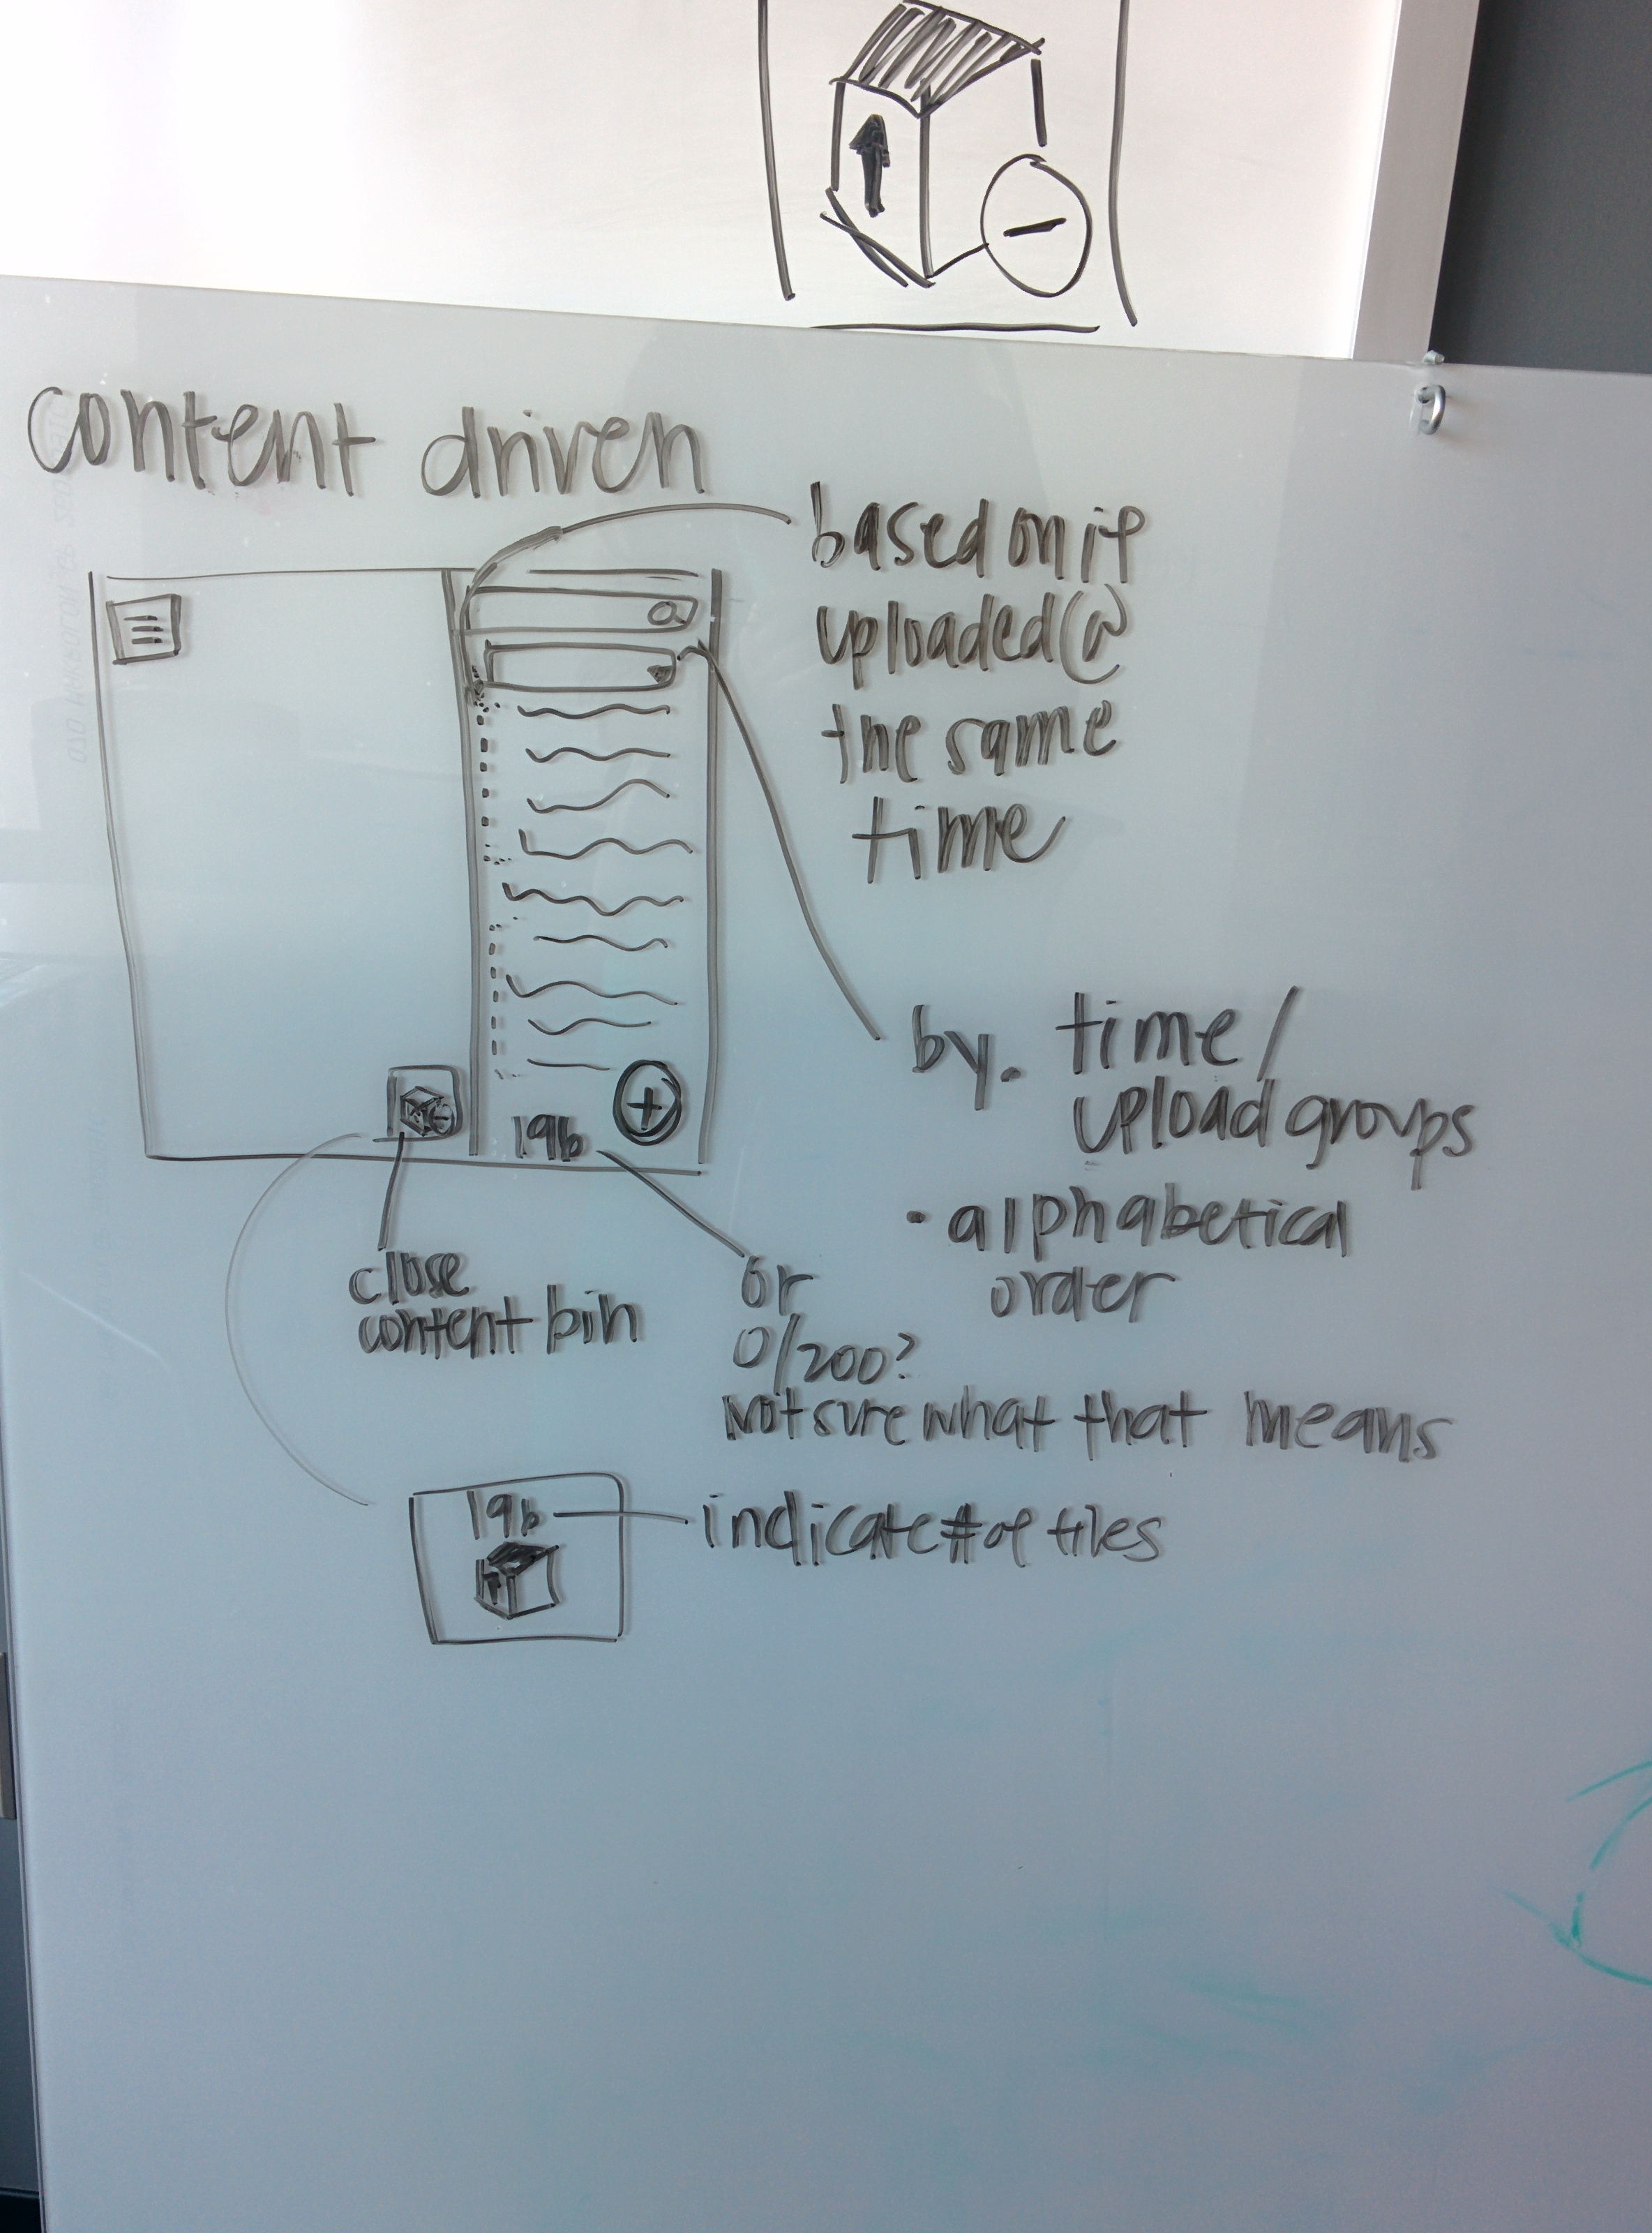 content driven
based on if
uploaded @
the same
time
by. time/
upload groups
• alphabetical
order
196
close
content bin
or
0/200?
Not sure what that means
196
indicate # of tiles